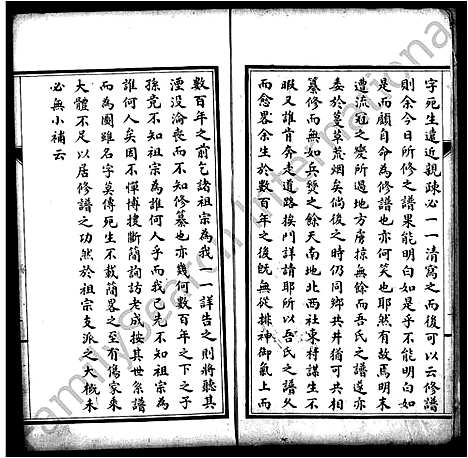 字死生遠近親疎必一一清寫之而後可以云修譜
則余今日所修之譜果能明白如是乎不能明白如
是而顧自命為修譜也亦何笑也耶然有故焉明末
遭流冦之變所過地方虜掠無餘而吾氏之譜遂亦
委於蔓草荒烟矣倘後之時仍同鄉共井猶可共相
纂修而無如兵燹之餘天南地北西社東村謀生不
暇又誰肯奔走道路挨門詳請耶所以吾氏之譜久
而愈畧余生於數百年之後旣無從排神御氣上而
數百年之前乞諸祖宗為我一一詳告之則將聽其
湮没淪喪而不知修纂也亦幾何數百年之下之子
孫竟不知祖宗為誰何人乎而我已先不知祖宗為
誰何人矣因不憚博搜斷簡詢訪老成按其世系譜
而為圖雖名字莫傳死生不載簡畧之至有傷家乘
大體不足以居修譜之功然於祖宗支派之大概未
必無小補云
FamilySearch International